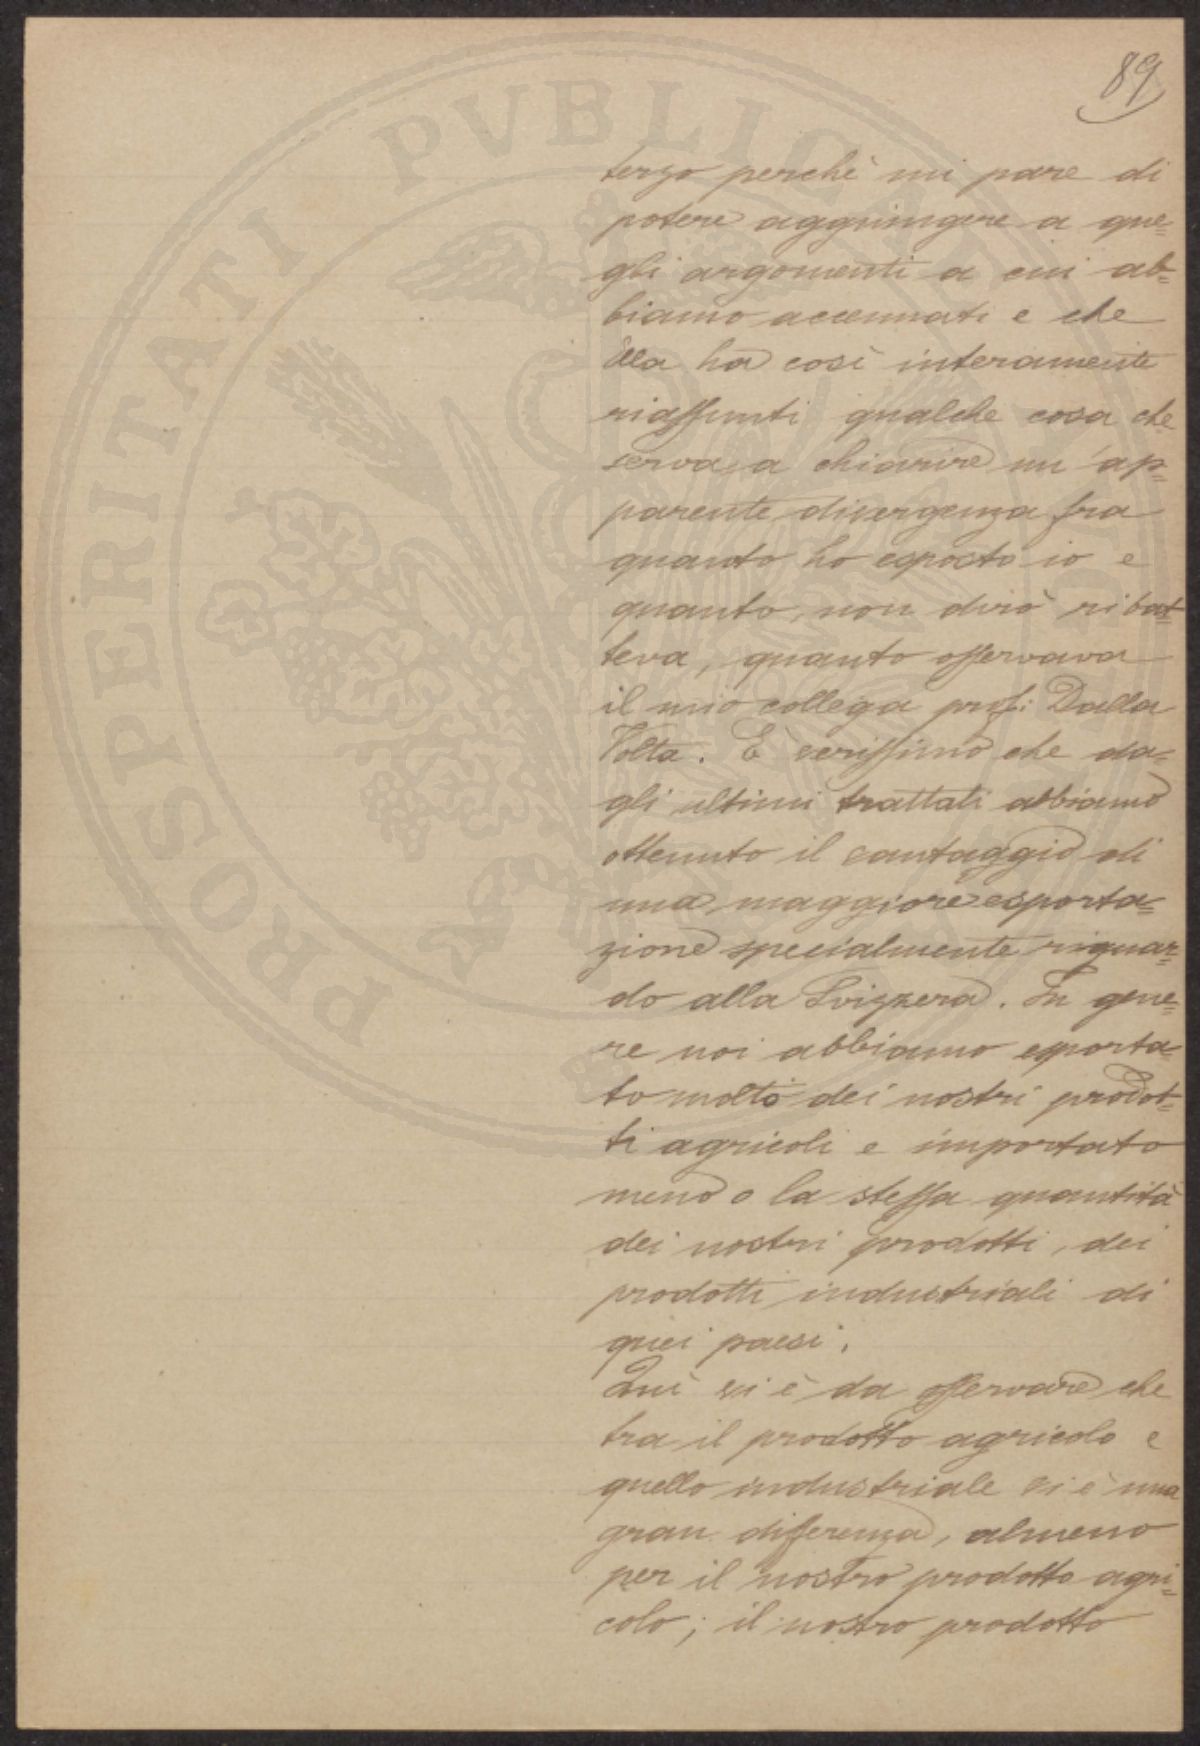 89
terzo perchè mi pare di
potere aggiungere a que=
gli argomenti a cui ab=
biamo accennati e che
Ella ha così interamente
riassunti qualche cosa che
serva a chiarire un'ap=
parente divergenza fra
quanto ho esposto io e
quanto, non dirò ribat=
teva, quanto osservava
il mio collega prof: Dalla
Volta. È verissimo che da=
gli ultimi trattati abbiamo
ottenuto il vantaggio di
una maggiore esporta=
zione specialmente riguar=
do alla Svizzera. In gene=
re noi abbiamo esporta=
to molto dei nostri prodot=
ti agricoli e importato
meno o la stessa quantità
dei nostri prodotti, dei
prodotti industriali di
quei paesi.
Qui vi è da osservare che
tra il prodotto agricolo e
quello industriale vi è una
gran differenza, almeno
per il nostro prodotto agri=
colo; il nostro prodotto
PROSPERITATI PVBLICAE